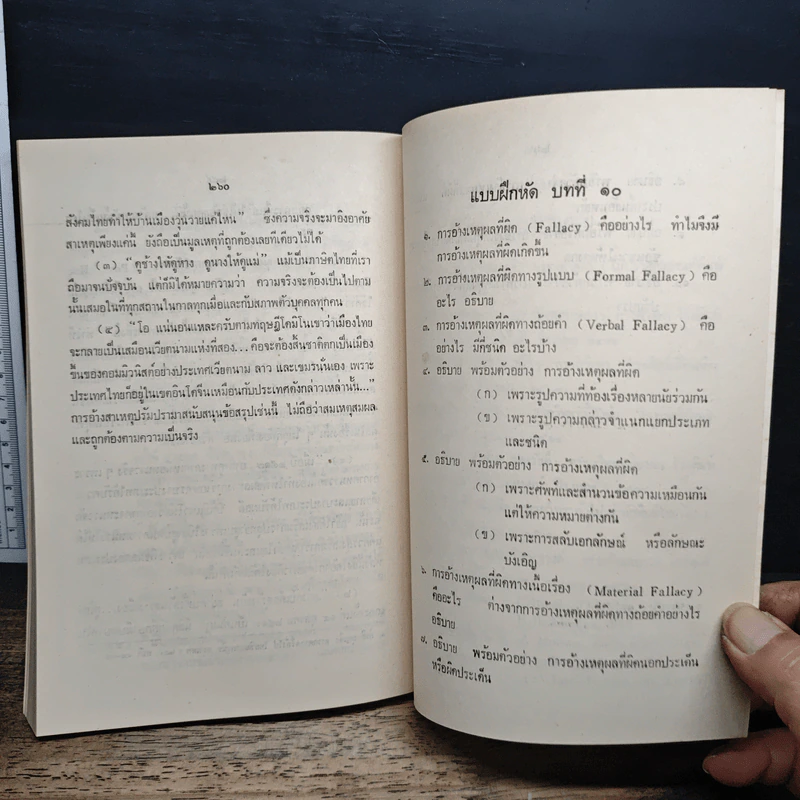 ๒๖๐
สังคมไทยทำให้บ้านเมืองวุ่นวายแค่ไหน” ซึ่งความจริงจะมาอิงอาศัย
สาเหตุเพียงแค่นี้ ยังถือเป็นมูลเหตุที่ถูกต้องเลยทีเดียวไม่ได้
(๓) “ดูช้างให้ดูหาง ดูนางให้ดูแม่” แม้เป็นภาษิตไทยที่เรา
ถือมาจนปัจจุบัน แต่ก็มิได้หมายความว่า ความจริงจะต้องเป็นไปตาม
นั้นเสมอในที่ทุกสถานในกาลทุกเมื่อและกับสภาพตัวบุคคลทุกคน
(๔) “โอ แน่นอนแหละครับตามทฤษฎีโดมิโนเขาว่าเมืองไทย
จะกลายเป็นเสมือนเวียตนามแห่งที่สอง...คือจะต้องสิ้นชาติตกเป็นเมือง
ขึ้นของคอมมิวนิสต์อย่างประเทศเวียตนาม ลาว และเขมรนั่นเอง เพราะ
ประเทศไทยก็อยู่ในเขตอินโดจีนเหมือนกับประเทศดังกล่าวเหล่านั้น...”
การอ้างสาเหตุปรัมปรามาสนับสนุนข้อสรุปเช่นนี้ ไม่ถือว่าสมเหตุสมผล
และถูกต้องตามความเป็นจริง
แบบฝึกหัด บทที่ ๑๐
๑. การอ้างเหตุผลที่ผิด (Fallacy) คืออย่างไร ทำไมจึงมี
การอ้างเหตุผลที่ผิดเกิดขึ้น
๒. การอ้างเหตุผลที่ผิดทางรูปแบบ (Formal Fallacy) คือ
อะไร อธิบาย
๓. การอ้างเหตุผลที่ผิดทางถ้อยคำ (Verbal Fallacy) คือ
อย่างไร มีกี่ชนิด อะไรบ้าง
๔. อธิบาย พร้อมตัวอย่าง การอ้างเหตุผลที่ผิด
(ก) เพราะรูปความที่ท้องเรื่องหลายนัยร่วมกัน
(ข) เพราะรูปความกล่าวจำแนกแยกประเภท
และชนิด
๕. อธิบาย พร้อมตัวอย่าง การอ้างเหตุผลที่ผิด
(ก) เพราะศัพท์และสำนวนข้อความเหมือนกัน
แต่ให้ความหมายต่างกัน
(ข) เพราะการสลับเอกลักษณ์ หรือลักษณะ
บังเอิญ
๖. การอ้างเหตุผลที่ผิดทางเนื้อเรื่อง (Material Fallacy)
คืออะไร ต่างจากการอ้างเหตุผลที่ผิดทางถ้อยคำอย่างไร
อธิบาย
๗. อธิบาย พร้อมตัวอย่าง การอ้างเหตุผลที่ผิดนอกประเด็น
หรือผิดประเด็น